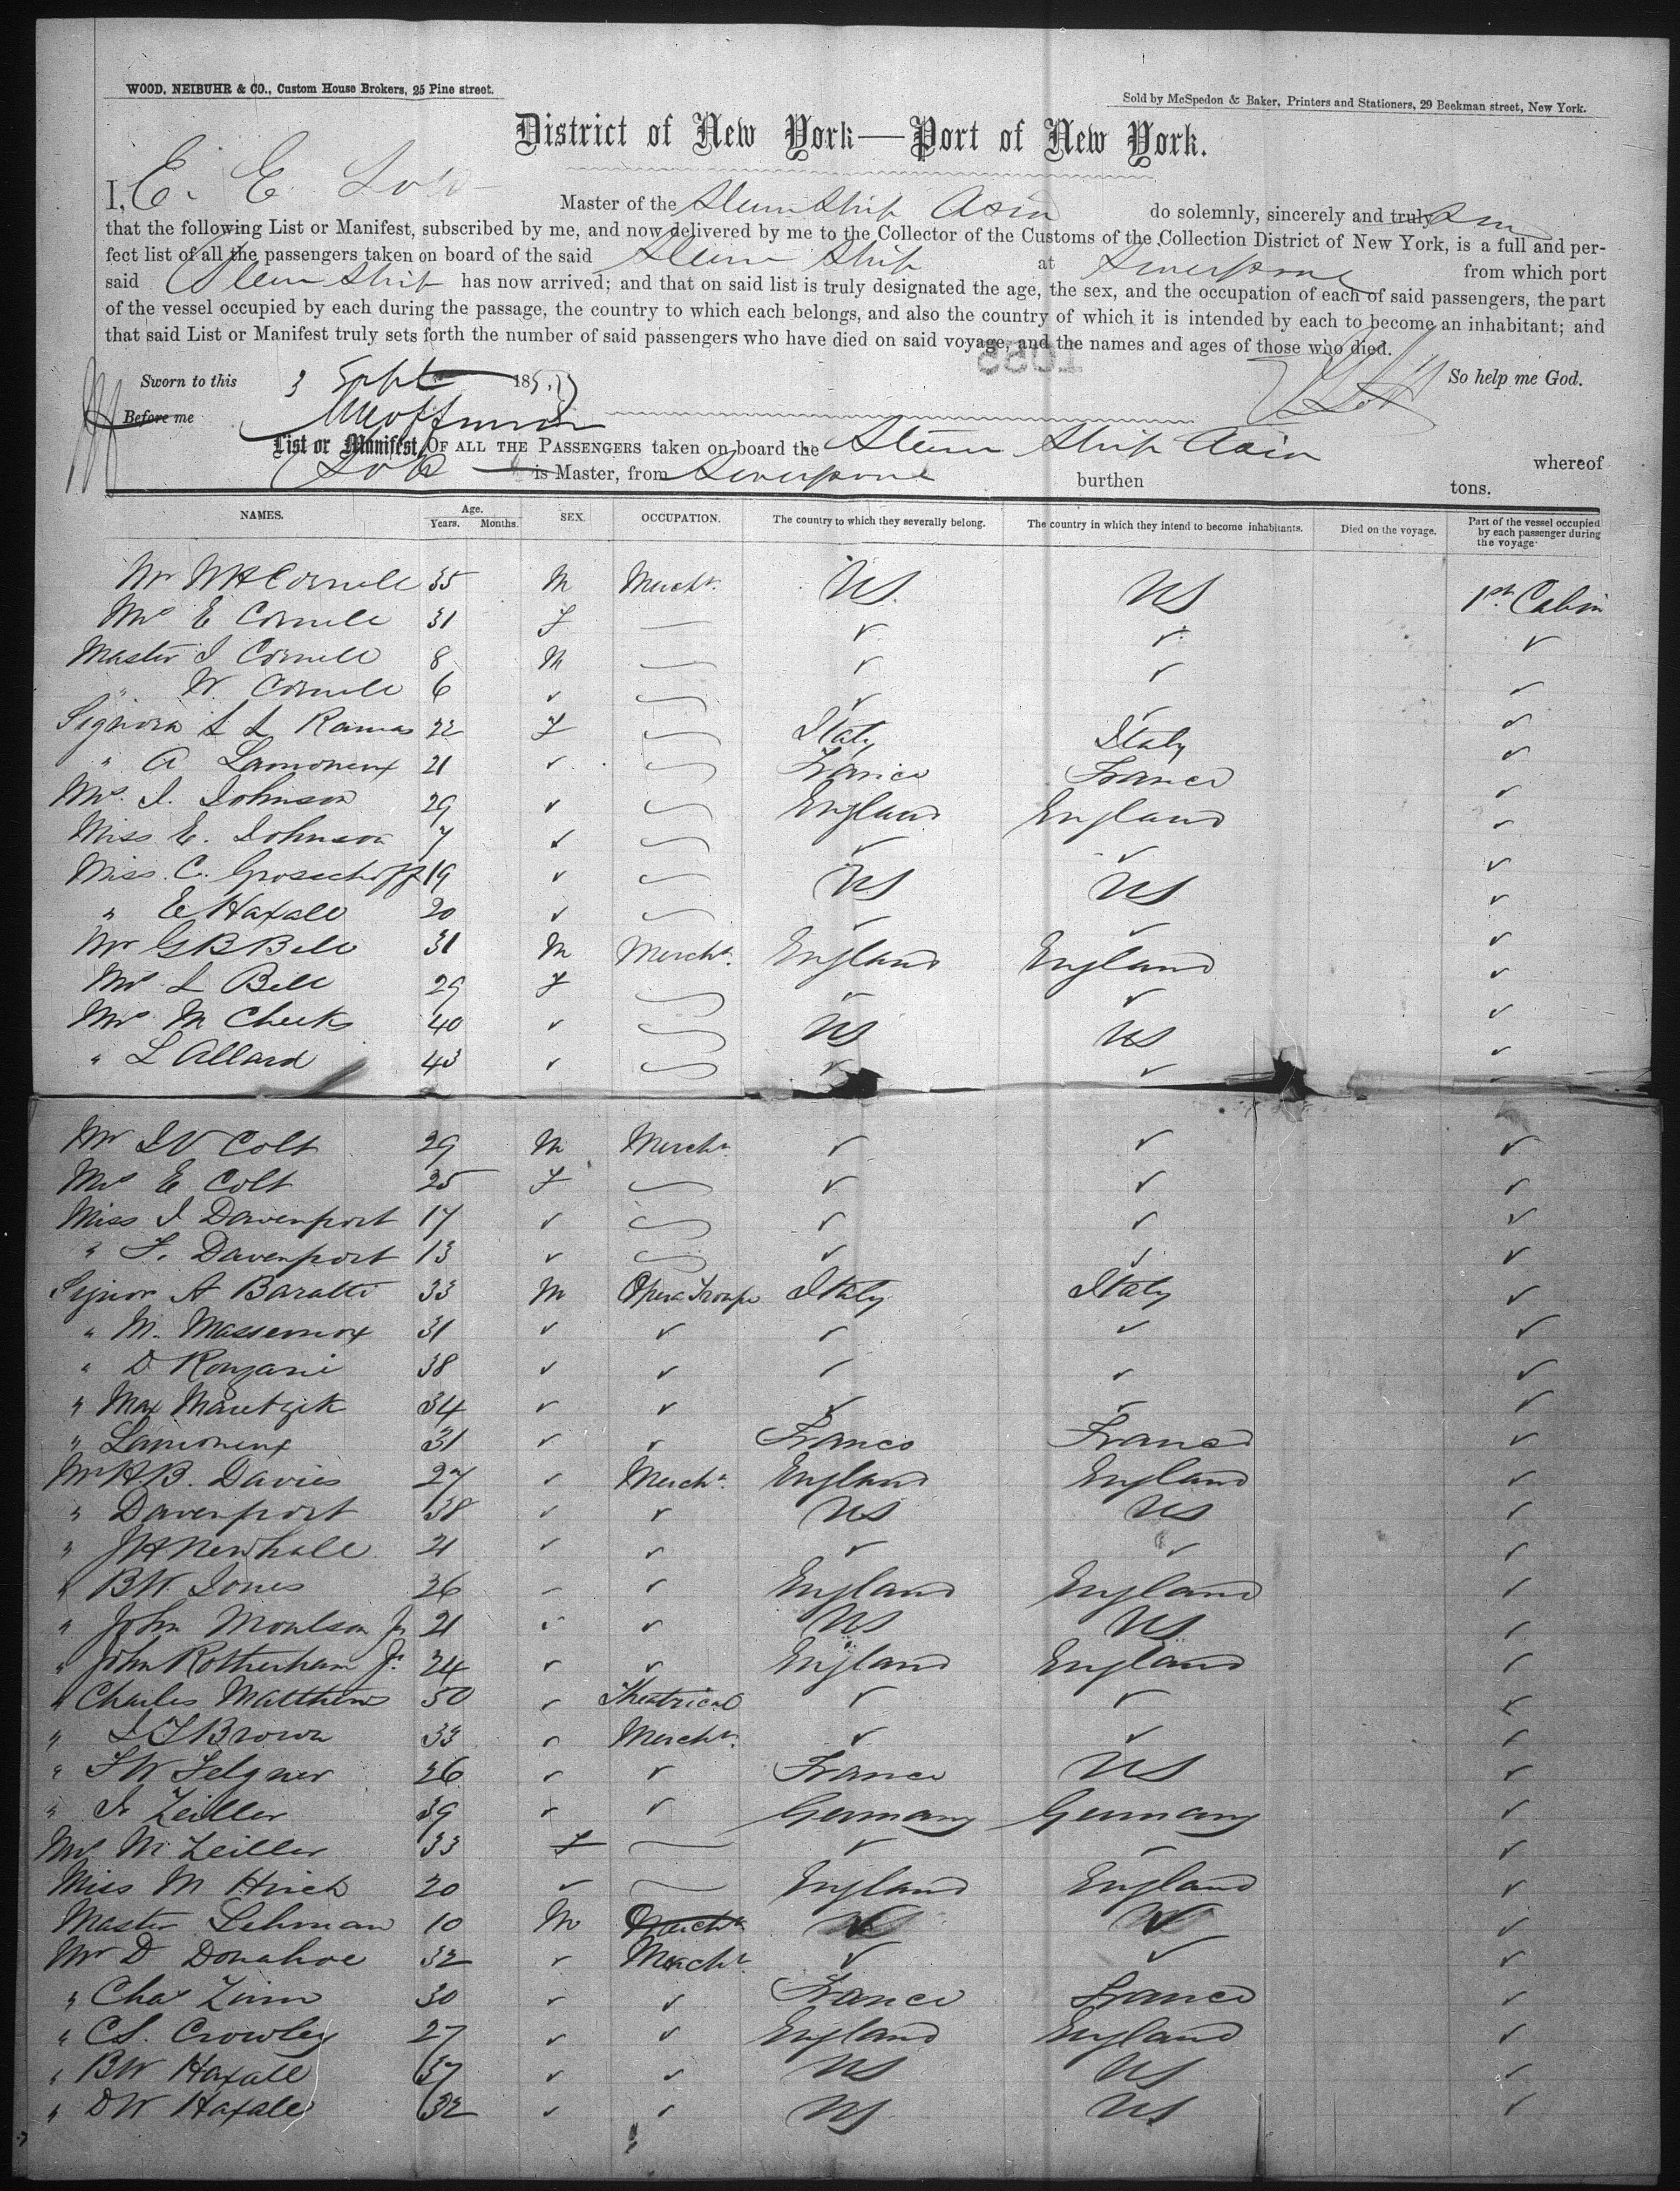 WOOD, NEIBUHR & CO., Custom House Brokers, 25 Pine street.
Sold by McSpedon & Baker, Printers and Stationers, 29 Beekman street, New York.
District of New York—Port of New York.
I, E. E. Lott Master of the Steam Ship Asia do solemnly, sincerely and truly
that the following List or Manifest, subscribed by me, and now delivered by me to the Collector of the Customs of the Collection District of New York, is a full and per-
fect list of all the passengers taken on board of the said Steam Ship at Liverpool from which port
said Steam Ship has now arrived; and that on said list is truly designated the age, the sex, and the occupation of each of said passengers, the part
of the vessel occupied by each during the passage, the country to which each belongs, and also the country of which it is intended by each to become an inhabitant; and
that said List or Manifest truly sets forth the number of said passengers who have died on said voyage, and the names and ages of those who died.
Sworn to this 3 Sept 185 So help me God.
Before me
List or Manifest OF ALL THE PASSENGERS taken on board the Steam Ship Asia whereof
Lott is Master, from Liverpool burthen tons.
NAMES. Age. Years. Months. SEX. OCCUPATION. The country to which they severally belong. The country in which they intend to become inhabitants. Died on the voyage. Part of the vessel occupied by each passenger during the voyage
Mr W H Cornell 35 M Mercht. US US 1st Cabin
Mrs E Cornell 31 F — ✓ ✓ ✓
Master J Cornell 8 M — ✓ ✓ ✓
" W. Cornell 6 ✓ — ✓ ✓ ✓
Signora L L Ramas 22 F — Italy Italy ✓
" A Lamoreux 21 ✓ — France France ✓
Mrs. J. Johnson 29 ✓ — England England ✓
Miss E. Johnson 7 ✓ — ✓ ✓ ✓
Miss C. Grosechopff 19 ✓ — US US ✓
" E Haxall 20 ✓ — ✓ ✓ ✓
Mr G B Bell 31 M Mercht. England England ✓
Mrs L Bell 29 F — ✓ ✓ ✓
Mrs M Cheeks 40 ✓ — US US ✓
" L Allard 43 ✓ — ✓ ✓ ✓
Mr J V Colt 29 M Mercht. ✓ ✓ ✓
Mrs E Colt 25 F — ✓ ✓ ✓
Miss J Davenport 17 ✓ — ✓ ✓ ✓
" F. Davenport 13 ✓ — ✓ ✓ ✓
Signor A Baratti 33 M Opera Troupe Italy Italy ✓
" M. 31 ✓ ✓ ✓ ✓ ✓
" D Ronzani 38 ✓ ✓ ✓ ✓ ✓
" Max Maretzek 34 ✓ ✓ ✓ ✓ ✓
" Lamoreux 31 ✓ ✓ France France ✓
Mr H.B. Davies 27 ✓ Mercht. England England ✓
" Davenport 38 ✓ ✓ US US ✓
" J H Newhall 21 ✓ ✓ ✓ ✓ ✓
" B W. Jones 26 ✓ ✓ England England ✓
" John Moulson Jr 21 ✓ ✓ US US ✓
" John Rotherham Jr. 24 ✓ ✓ England England ✓
" Charles Matthews 50 ✓ Theatrical ✓ ✓ ✓
" J F Brown 33 ✓ Mercht. ✓ ✓ ✓
" F W Felgner 26 ✓ ✓ France US ✓
" Jr Zeiller 39 ✓ ✓ Germany Germany ✓
Mrs M. Zeiller 33 F — ✓ ✓ ✓
Miss M Hirch 20 ✓ — England England ✓
Master Lehman 10 M Mercht ✓ ✓ ✓
Mr D Donahoe 32 ✓ Mercht. ✓ ✓ ✓
" Chas Zinn 30 ✓ ✓ France France ✓
" C S. Crowley 27 ✓ ✓ England England ✓
" B W Haxall 37 ✓ ✓ US US ✓
" D W Haxall 32 ✓ ✓ US US ✓